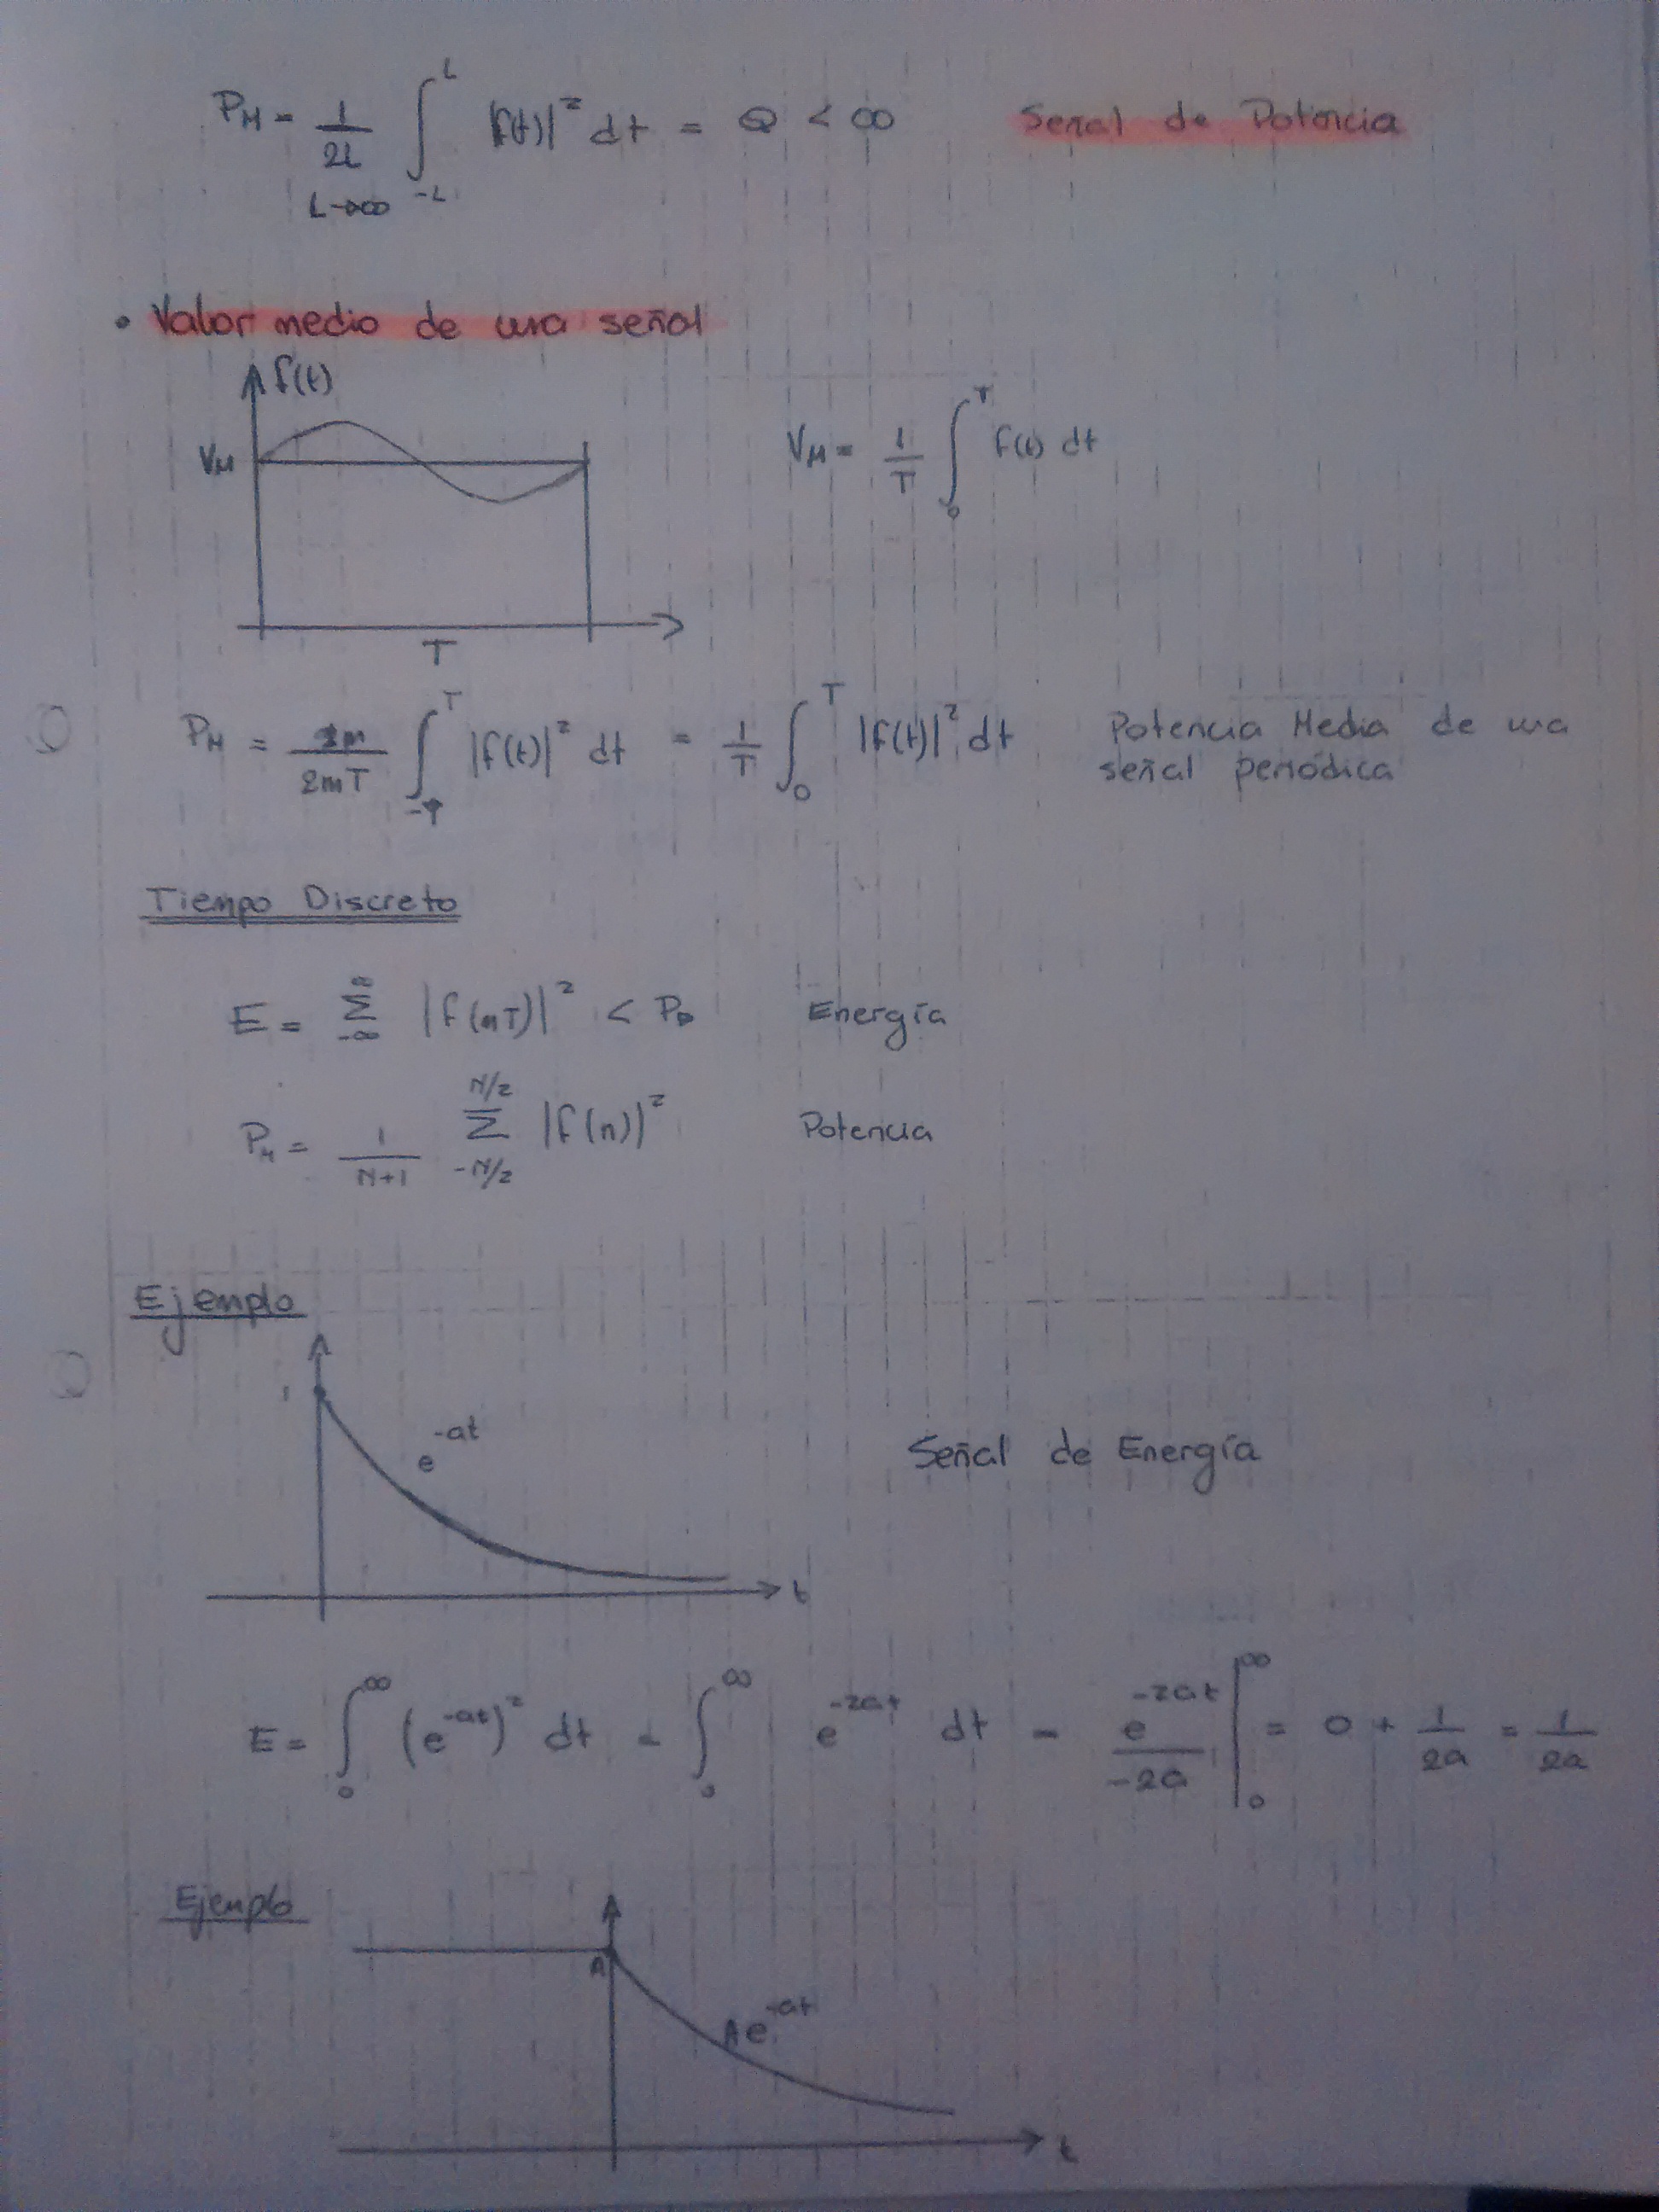 P_M = 1/2L ∫_{-L}^{L} |f(t)|² dt = Q < ∞ Señal de Potencia
L→∞
• Valor medio de una señal
f(t)
V_M
V_M = 1/T ∫_0^T f(t) dt
T
P_M = 2m/2mT ∫_{-T}^{T} |f(t)|² dt = 1/T ∫_0^T |f(t)|² dt Potencia Media de una
señal periódica
Tiempo Discreto
E = Σ_{-∞}^{∞} |f(nT)|² < Energía
P_M = 1/N+1 Σ_{-N/2}^{N/2} |f(n)|² Potencia
Ejemplo
1
e^{-at}
Señal de Energía
t
E = ∫_0^∞ (e^{-at})² dt = ∫_0^∞ e^{-2at} dt = e^{-2at}/-2a |_0^∞ = 0 + 1/2a = 1/2a
Ejemplo
A
Ae^{-at}
t